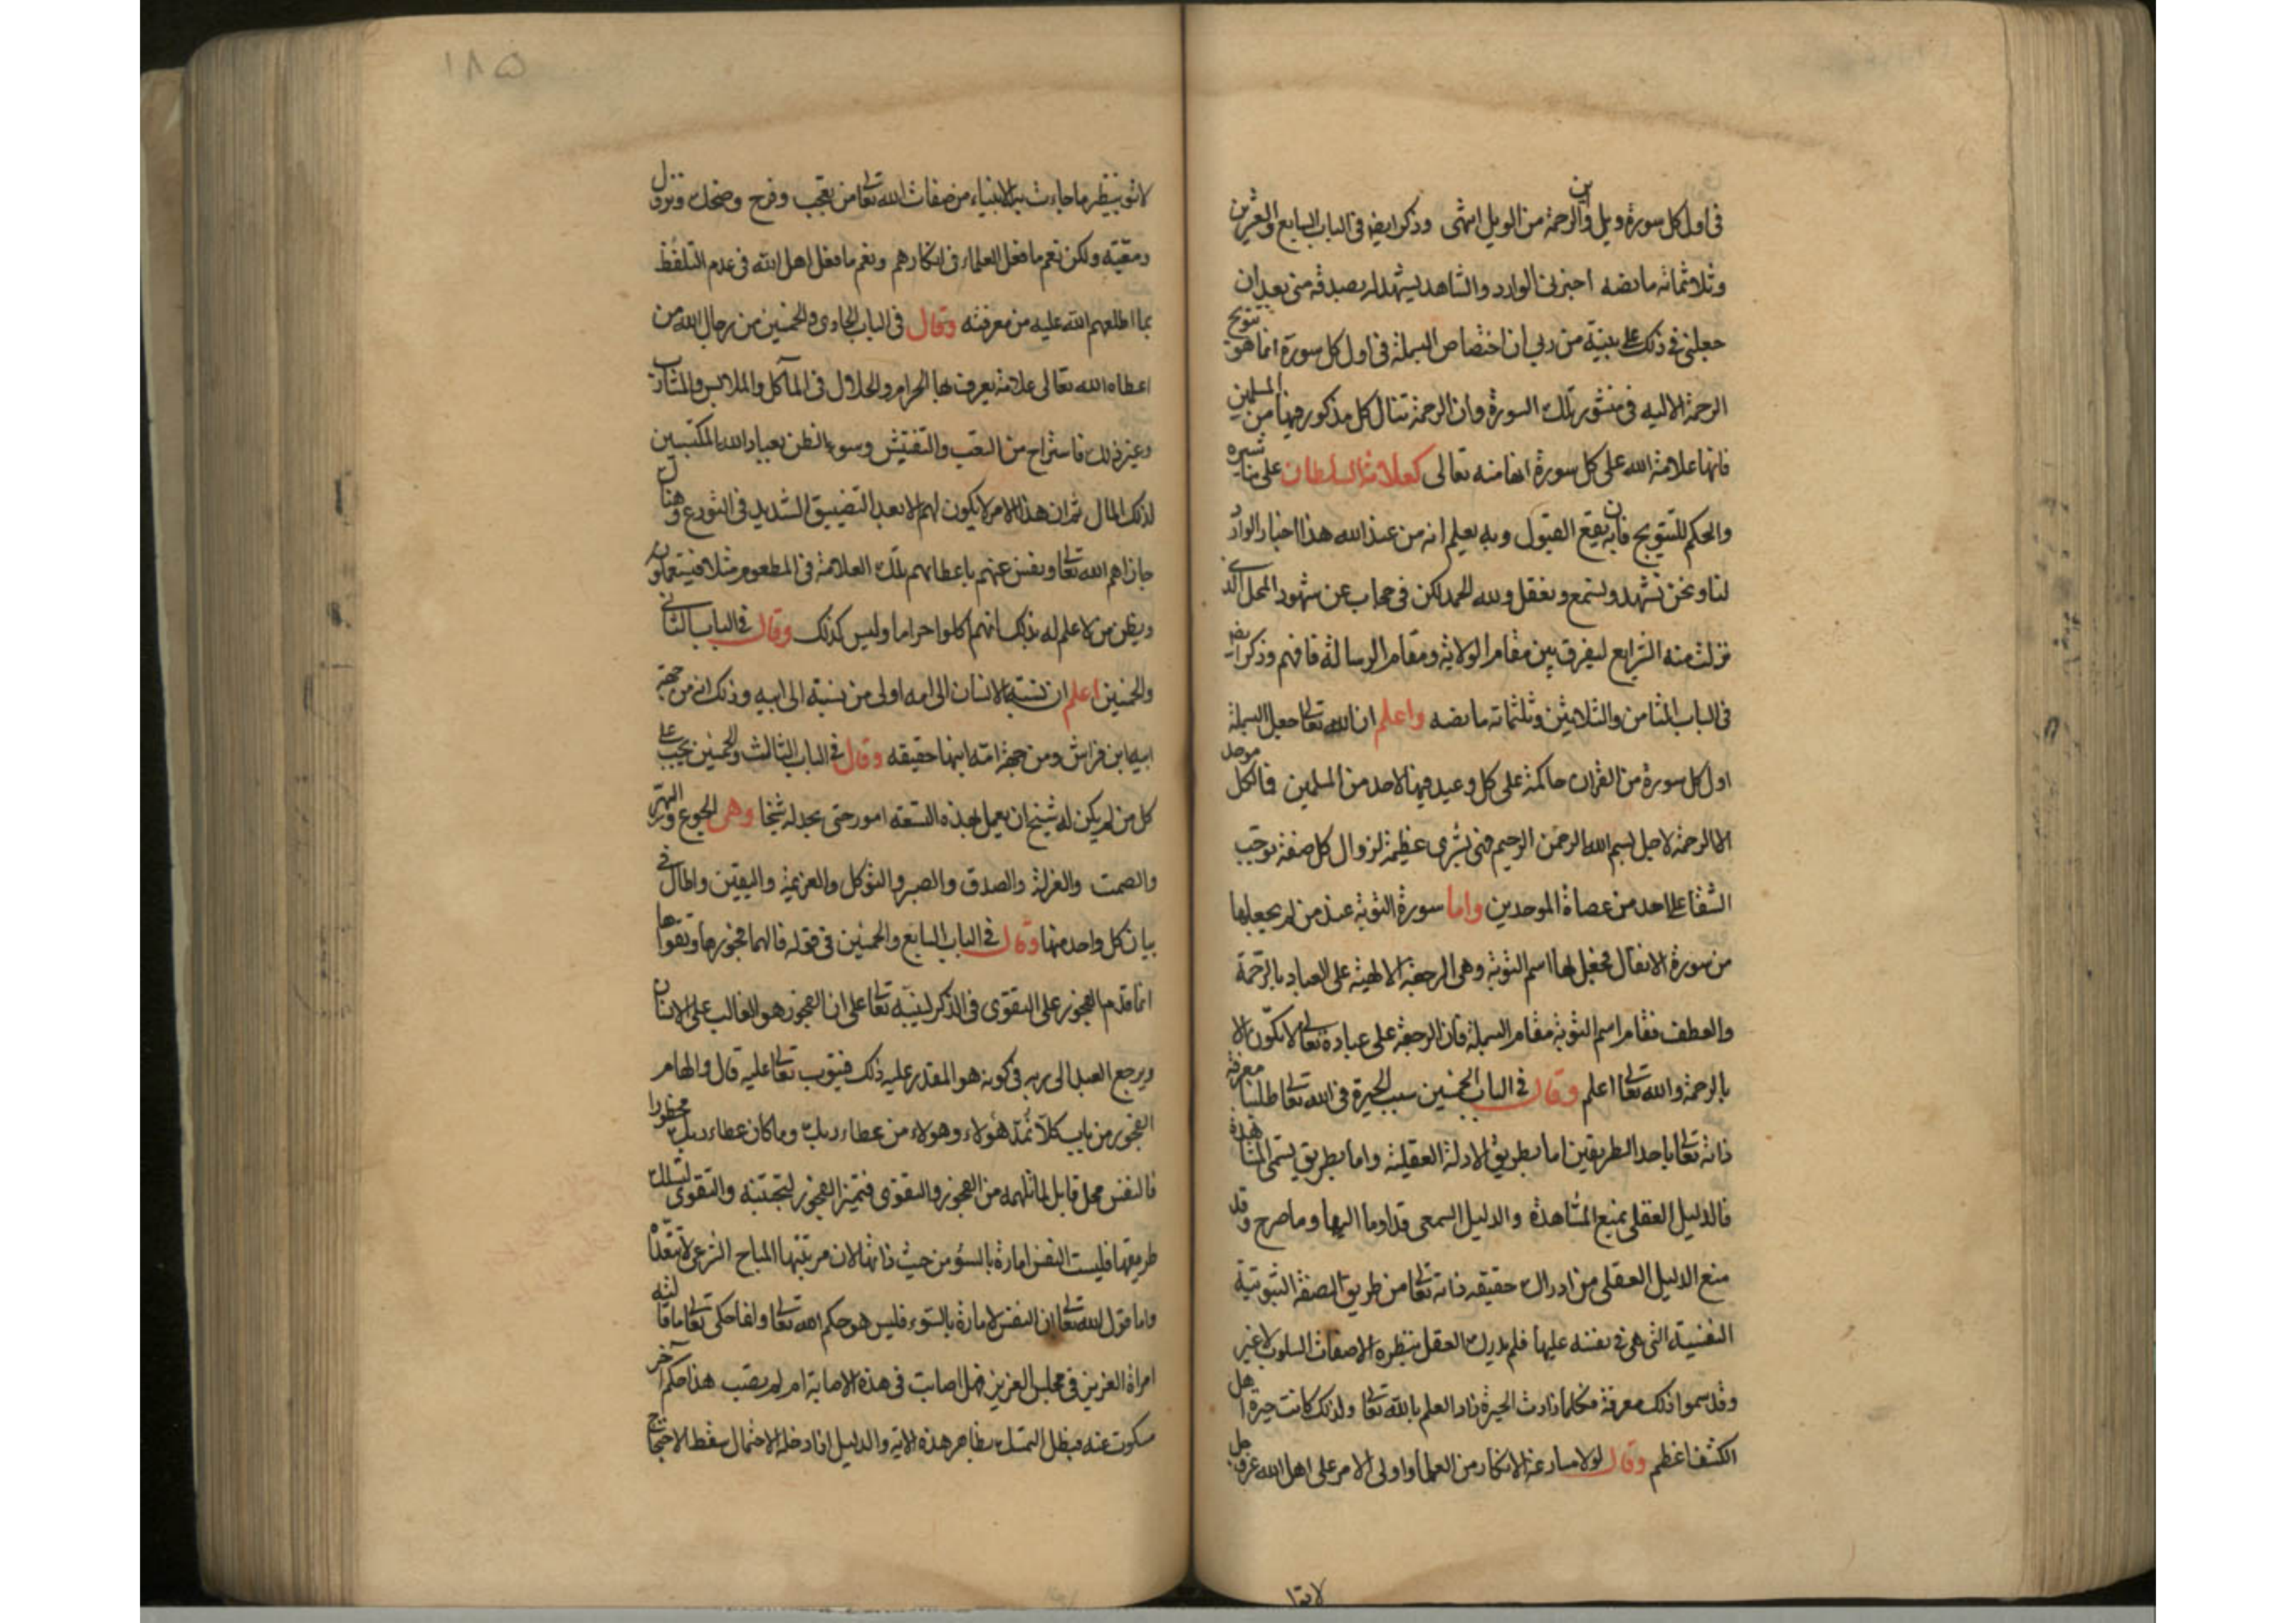 في اول كل سورة ويل واين الرحمة من الويل انتهى وذكر ايضا في الباب السابع والعشرين
وثلاثمائة ما نصه اخبرني الوارد والشاهد يشهد له بصدقه مني بعد ان
جعلني في ذلك على بينة من ربي ان اختصاص البسملة في اول كل سورة انما هو تتويج
الرحمة الالهيه في منشور تلك السورة وان الرحمة تنال كل مذكور فيها من المسلمين
فانها علامة الله على كل سورة انها منه تعالى كعلامة السلطان على مناشيره
والحكم للتتويج فان به يقع القبول وبه يعلم انه من عند الله هذا اخبار الوارد
لنا ونحن نشهد ونسمع ونعقل ولله الحمد لكن في حجاب عن شهود المحل الذي
نزلت منه الشرايع ليفرق بين مقام الولاية ومقام الرسالة فافهم وذكر ايضا
في الباب الثامن والثلاثين وثلثمائه ما نصه واعلم ان الله تعالى جعل البسملة
اول كل سورة من القران حاكمة على كل وعيد فيها لاحد من المسلمين فالكل موصل
الى الرحمة لاجل بسم الله الرحمن الرحيم فهي بشرى عظيمة لزوال كل صفة توجب
الشقا على احد من عصاة الموحدين واما سورة التوبة عند من لم يجعلها
من سورة الانفال فجعل لها اسم التوبة وهي الرجعة الالهية على العباد بالرحمة
والعطف فقام اسم التوبة مقام البسملة فان الرجعة على عباده تعالى لا تكون الا
بالرحمة والله تعالى اعلم وقال في الباب الخمسين سبب الحيرة في الله تعالى طلبنا معرفة
ذاته تعالى باحد الطريقين اما بطريق الادلة العقلية واما بطريق تسمى المشاهدة
فالدليل العقلي يمنع المشاهدة والدليل السمعي قد اوما اليها وما صرح وقد
منع الدليل العقلي من ادراك حقيقه ذاته تعالى من طريق الصفة الثبوتية
النفسية التي هي في نفسه عليها فلم يدرك العقل بنظره الا صفات السلوب لا غير
وقد سموا ذلك معرفة فكلما زادت الحيرة زاد العلم بالله تعالى ولذلك كانت حيرة اهل
الكشف اعظم وقال لولا مسارعة الانكار من العلماء واولى الامر على اهل الله عز وجل
لاتوا
١٨٥
لاتو بنظير ما جاءت به الانبياء من صفات الله تعالى من تعجب وفرح وضحك ونزول
ومعية ولكن نعم ما فعل العلماء في انكارهم ونعم ما فعل اهل الله في عدم التلفظ
بما اطلعهم الله عليه من معرفته وقال في الباب الحادي والخمسين من رجال الله من
اعطاه الله تعالى علامة يعرف بها الحرام والحلال في المآكل والملابس والمشارب
وغير ذلك فاستراح من التعب والتفتيش وسوء الظن بعباد الله المكتسبين
لذلك المال ثم ان هذا الامر لا يكون لهم الا بعد التضييق الشديد في التورع وهنالك
جازاهم الله تعالى ونفس عنهم باعطائهم تلك العلامة في المطعوم مثلا فيستعملون
ويظن من لا علم له بذلك انهم اكلوا حراما وليس كذلك وقال في الباب الثاني
والخمسين اعلم ان نسبة الانسان الى امه اولى من نسبته الى ابيه وذلك انه من جهة
ابيه ابن فراش ومن جهة امه ابنها حقيقه وقال في الباب الثالث والخمسين يجب على
كل من لم يكن له شيخ ان يعمل بهذه التسعة امور حتى يجد له شيخا وهي الجوع والسهر
والصمت والعزلة والصدق والصبر والتوكل والعزيمة واليقين واطال في
بيان كل واحد منها وقال في الباب السابع والخمسين في قوله فالهما فجورها وتقواها
انما قدم الفجور على التقوى في الذكر لينبه تعالى على ان الفجور هو الغالب على الانسان
ويرجع العبد الى ربه في كونه هو المقدر عليه ذلك فيتوب تعالى عليه قال والهام
الفجور من باب كلا نمد هؤلاء وهولاء من عطاء ربك وما كان عطاء ربك محظورا
فالنفس محل قابل لما تلهمه من الفجور والتقوى فتميز الفجور لتجتنبه والتقوى لتسلك
طريقها فليست النفس امارة بالسؤ من حيث ذاتها لان مرتبتها المباح الشرعي لا تتعداه
واما قول الله تعالى ان النفس لامارة بالسوء فليس هو حكم الله تعالى وانما حكى تعالى ما قالته
امراة العزيز في مجلس العزيز فهل اصابت في هذه الاضافة ام لم تصب هذا حكم آخر
مسكوت عنه فبطل التمسك بظاهر هذه الاية والدليل اذا دخله الاحتمال سقط الاحتجاج